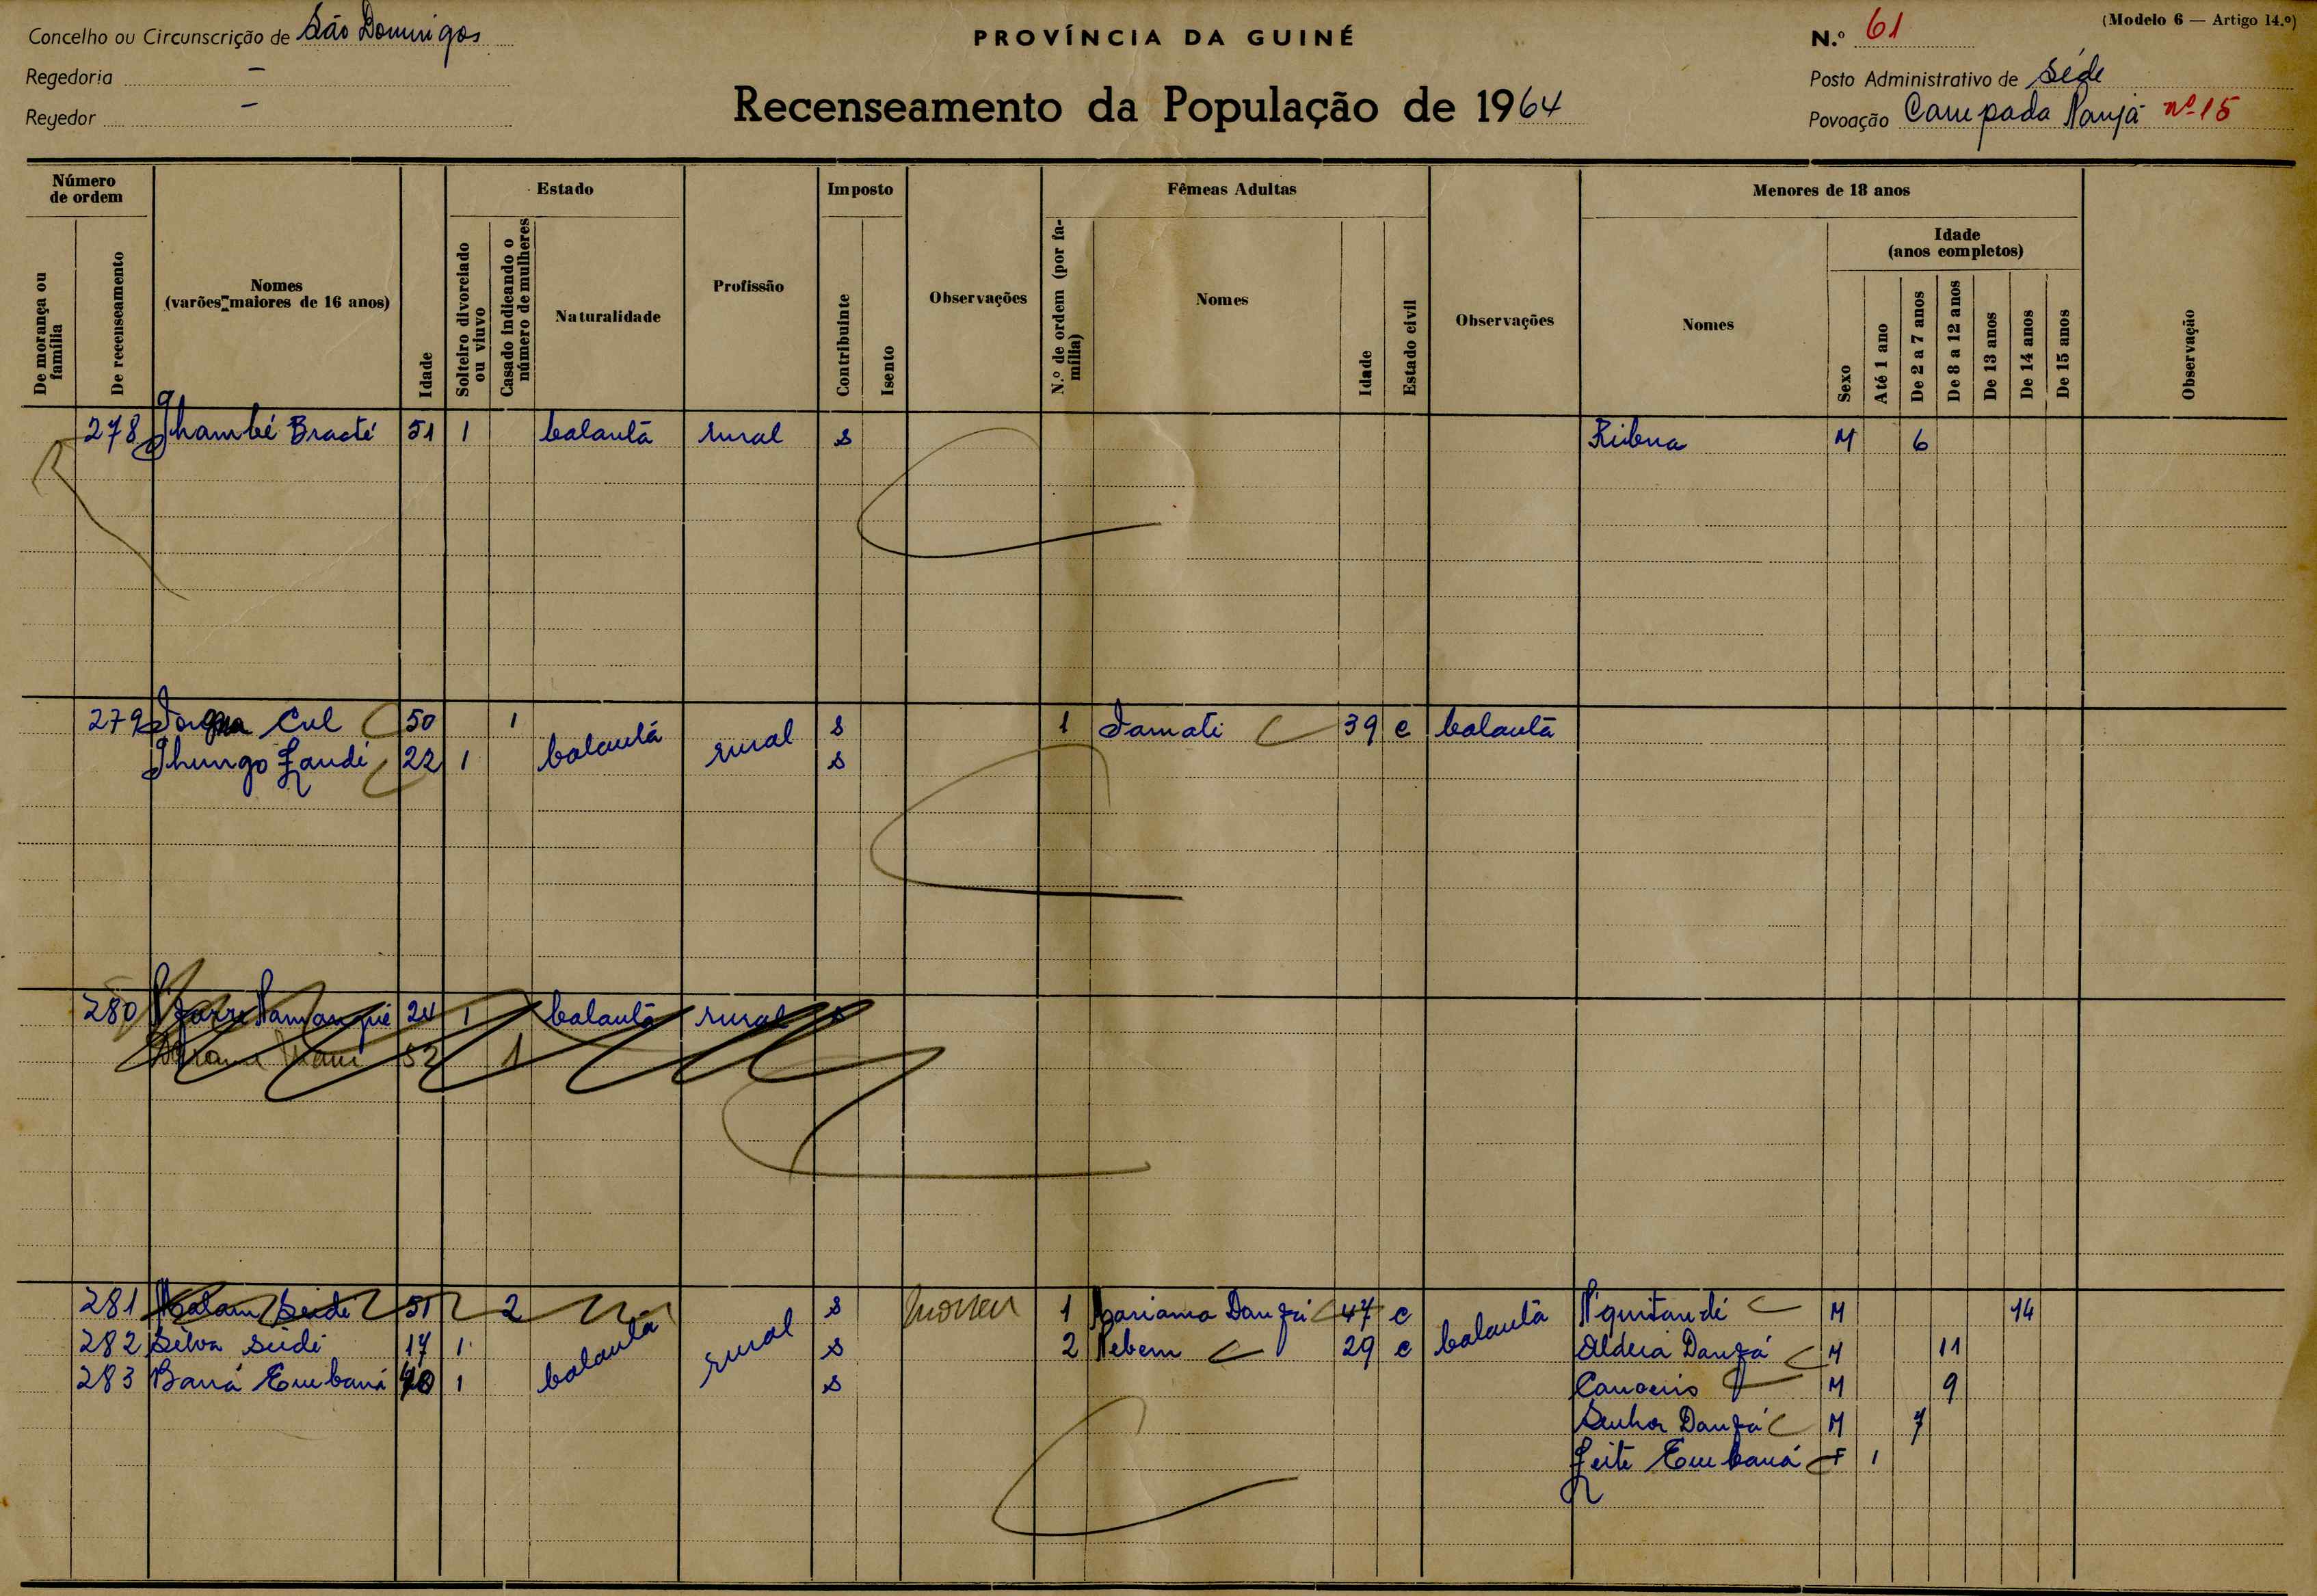 Concelho ou Circunscrição de São Domingos
Regedoria –
Regedor –
PROVÍNCIA DA GUINÉ
Recenseamento da População de 1964
(Modelo 6 — Artigo 14.º)
N.º 61
Posto Administrativo de Séde
Povoação Campada Nanjá nº 15
Número de ordem
De morança ou família
De recenseamento
Nomes (varões maiores de 16 anos)
Idade
Estado
Solteiro divorciado ou viuvo
Casado indicando o número de mulheres
Naturalidade
Profissão
Imposto
Contribuinte
Isento
Observações
Fêmeas Adultas
N.º de ordem (por família)
Nomes
Idade
Estado civil
Observações
Menores de 18 anos
Nomes
Sexo
Idade (anos completos)
Até 1 ano
De 2 a 7 anos
De 8 a 12 anos
De 13 anos
De 14 anos
De 15 anos
Observação
278 Jhambé Bracté 51 1 balantã rural s Ribna M 6
279 Cul 50 1 balantã rural s 1 Iamati 39 c balantã
Jhungo Landi 22 1 s
280 24 1 balantã rural s
52 1
281 Malam Seidi 51 2 balantã rural s morreu 1 Mariama Danfá 47 c balantã N'quitandi M 14
282 Silva Seidi 17 1 s 2 Nebem 29 c Aldeia Danfá M 11
283 Baná Embaná 1 s Canoeiro M 9
Senhor Danfá M 7
Leite Embaná F 1